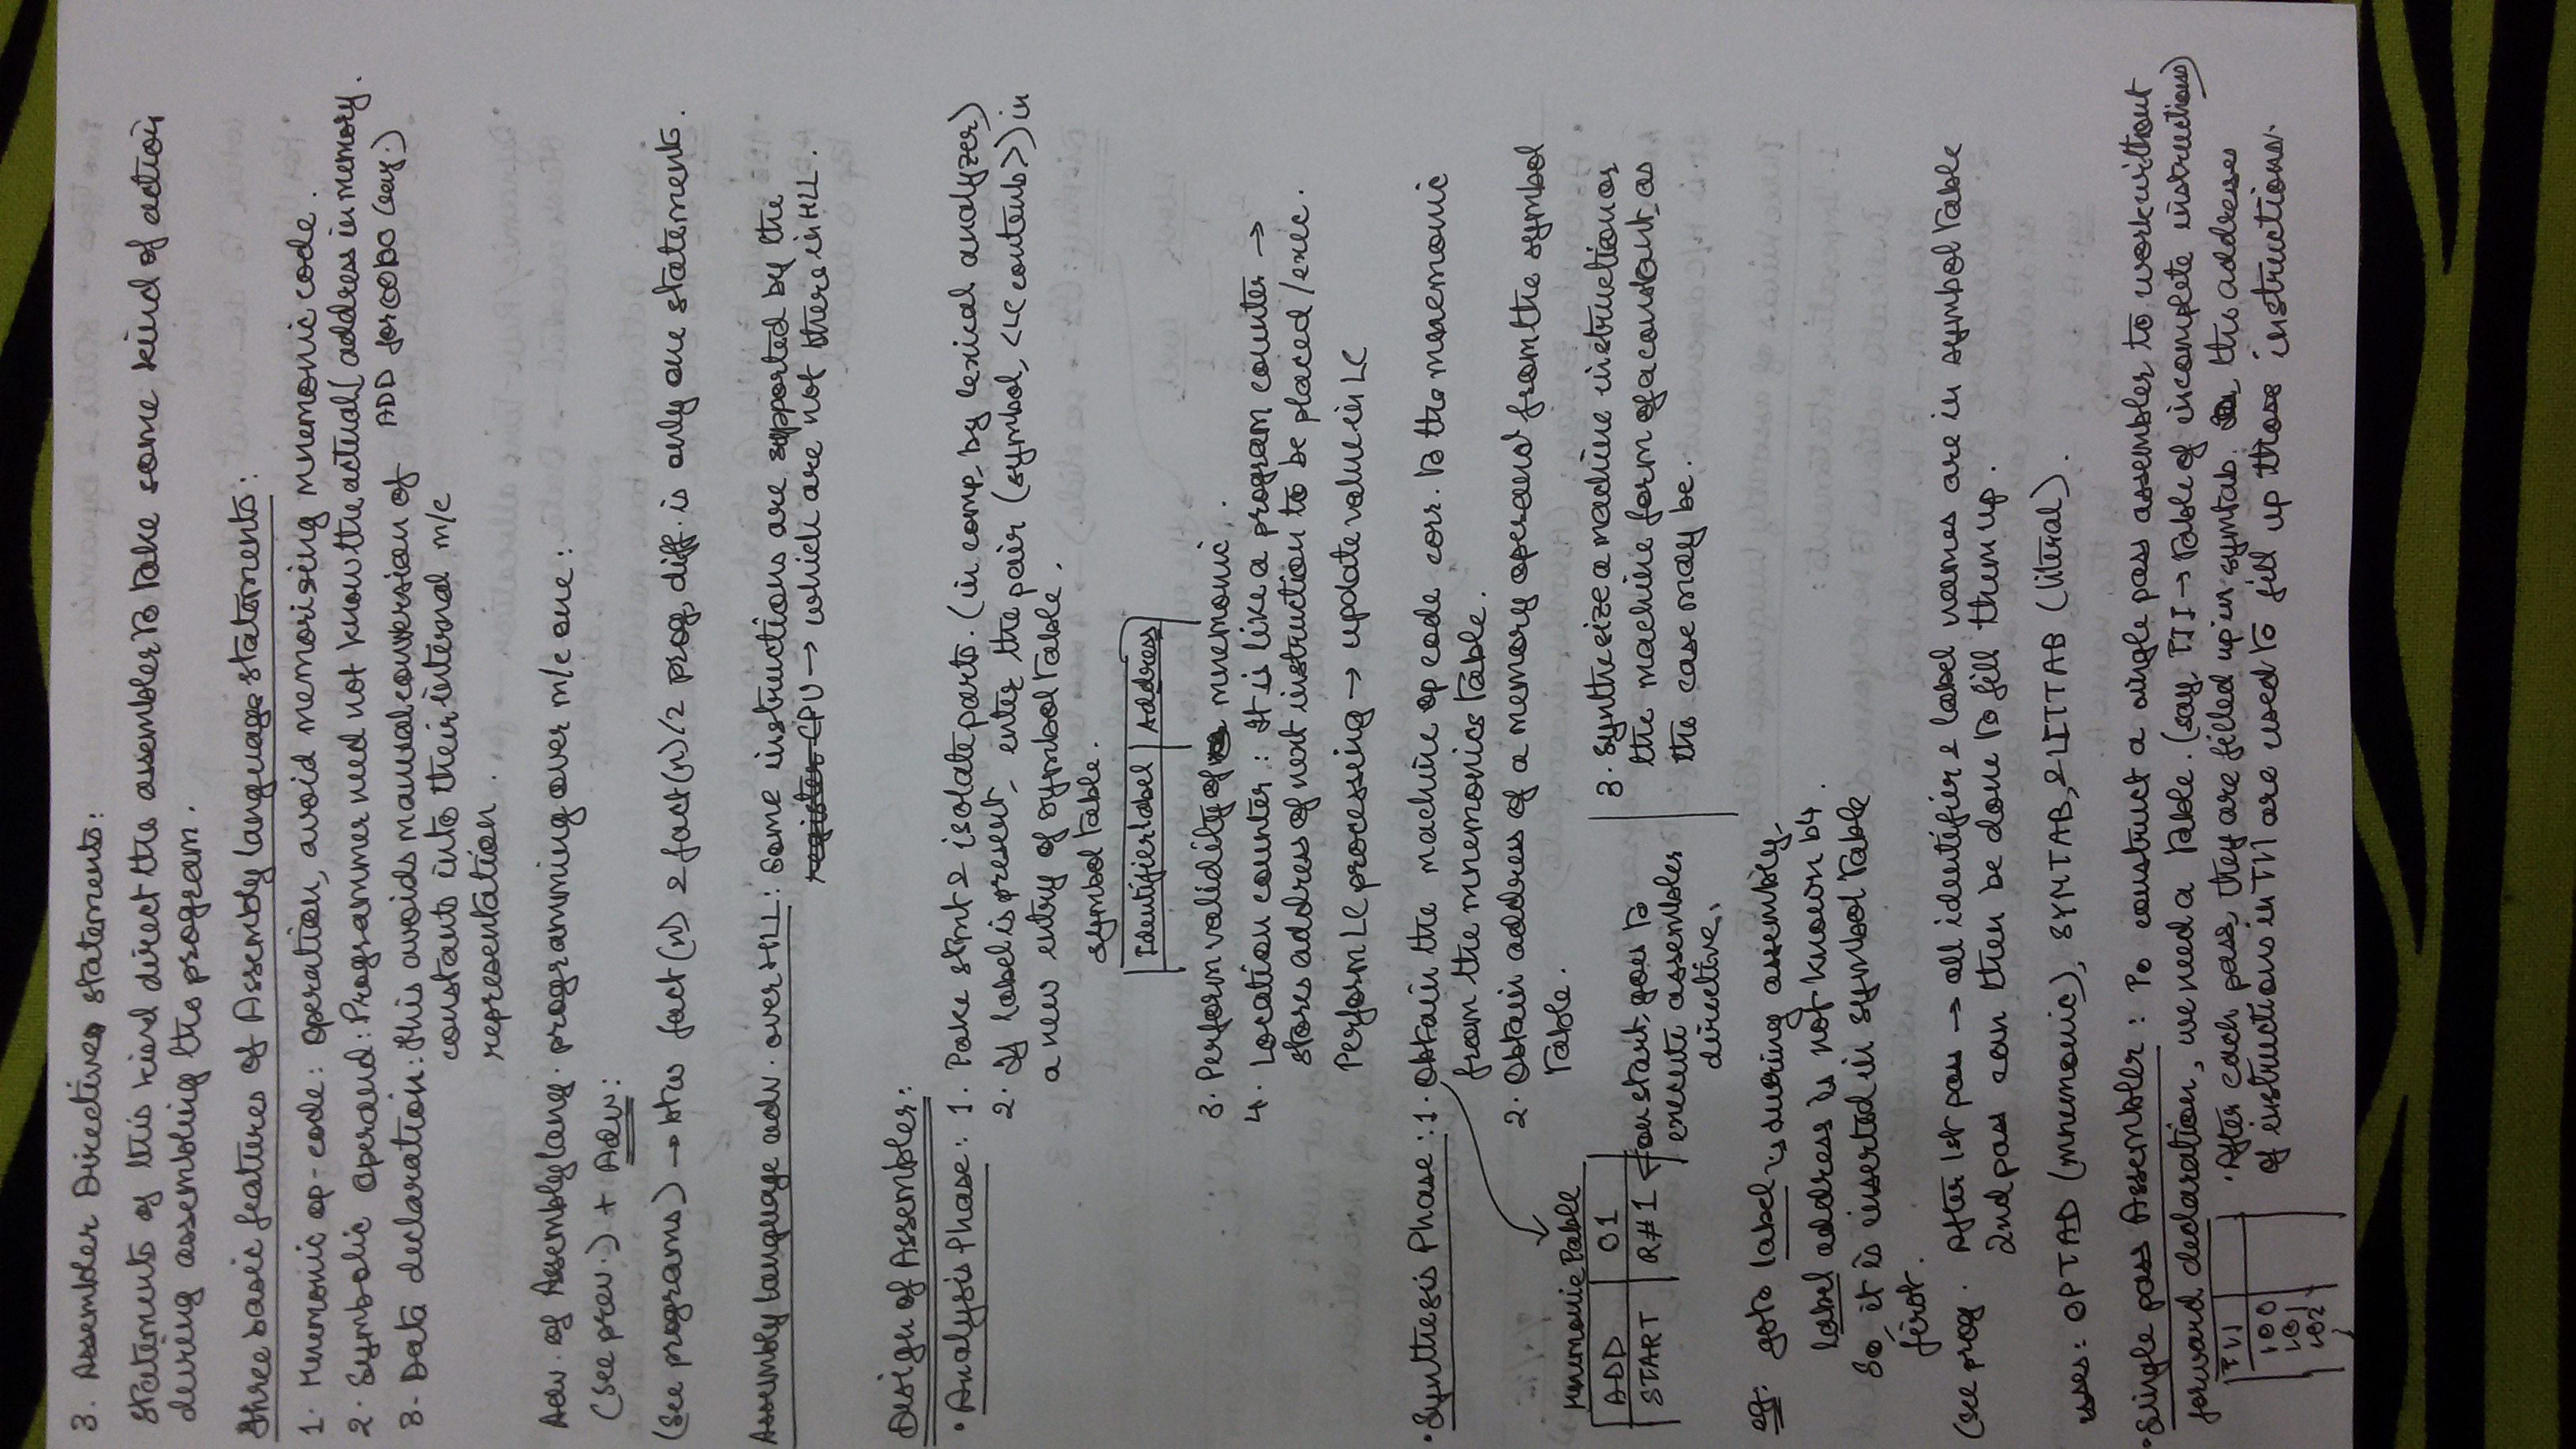 3. Assembler Directives statements:
Statements of this kind direct the assembler to take some kind of action
during assembling the program.
Three basic features of Assembly language statements:
1. Mnemonic op-code: operation, avoid memorising mnemonic code.
2. Symbolic Operand: Programmer need not know the actual address in memory.
ADD for 0000 (say.)
3. Data declaration: This avoids manual conversion of
constants into their internal m/c
representation.
Adv. of Assembly lang. programming over m/c one:
(See prev.) + Adv:
(See programs) → btw fact(n) & fact(n)/2 prog, diff. is only one statement.
Assembly language adv. over HLL: Some instructions are supported by the
register CPU → which are not there in HLL.
Design of Assembler:
• Analysis Phase: 1. Take stmt & isolate parts. (in comp, by lexical analyzer)
2. If label is present, enter the pair (symbol, <LC contents>) in
a new entry of symbol table.
symbol table.
Identifier label | Address
3. Perform validity of mnemonic.
4. Location counter: It is like a program counter →
stores address of next instruction to be placed/exec.
Perform LC processing → update value in LC
• Synthesis Phase: 1. Obtain the machine op code corr. to the mnemonic
from the mnemonics table.
2. Obtain address of a memory operand from the symbol
table.
Mnemonic Table
ADD | 01
START | R#1 on start, goes to
execute assembler
directive.
3. Synthesize a machine instruction or
the machine form of a constant, as
the case may be.
eg: goto label during assembly,
label address is not known b4.
So, it is inserted in symbol table
first.
(See prog. After 1st pass → all identifier & label names are in symbol table
2nd pass can then be done to fill them up.
uses: OPTAB (mnemonic), SYMTAB, & LITTAB (literal).
• Single pass Assembler: To construct a single pass assembler to work without
forward declaration, we need a table. (say, TII → Table of incomplete instructions)
TII
100
101
102
• After each pass, they are filled up in symtab. So, the addresses
of instructions in TII are used to fill up those instructions.